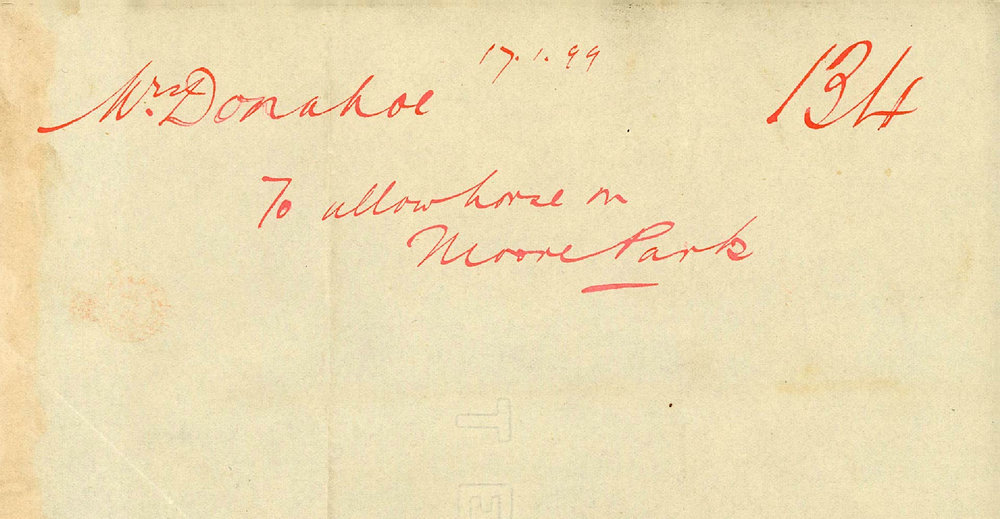 17.1.99
Mrs Donahoe
134
To allow horse on
Moore Park
T
E